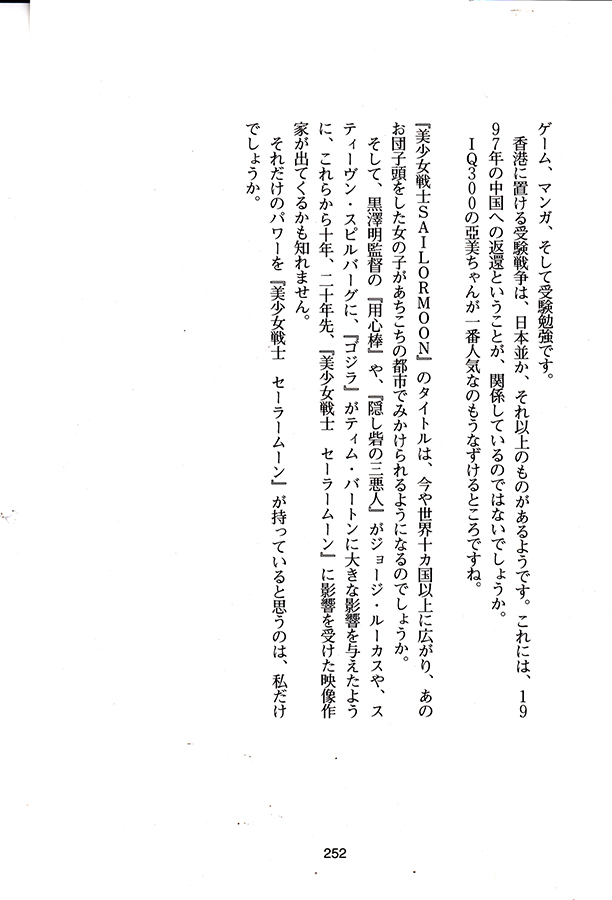 ゲーム、マンガ、そして受験勉強です。
香港に置ける受験戦争は、日本並か、それ以上のものがあるようです。これには、19
97年の中国への返還ということが、関係しているのではないでしょうか。
IQ300の亜美ちゃんが一番人気なのもうなずけるところですね。
『美少女戦士SAILORMOON』のタイトルは、今や世界十カ国以上に広がり、あの
お団子頭をした女の子があちこちの都市でみかけられるようになるのでしょうか。
そして、黒澤明監督の『用心棒』や、『隠し砦の三悪人』がジョージ・ルーカスや、ス
ティーヴン・スピルバーグに、『ゴジラ』がティム・バートンに大きな影響を与えたよう
に、これらから十年、二十年先、『美少女戦士 セーラームーン』に影響を受けた映像作
家が出てくるかも知れません。
それだけのパワーを『美少女戦士 セーラームーン』が持っていると思うのは、私だけ
でしょうか。
252